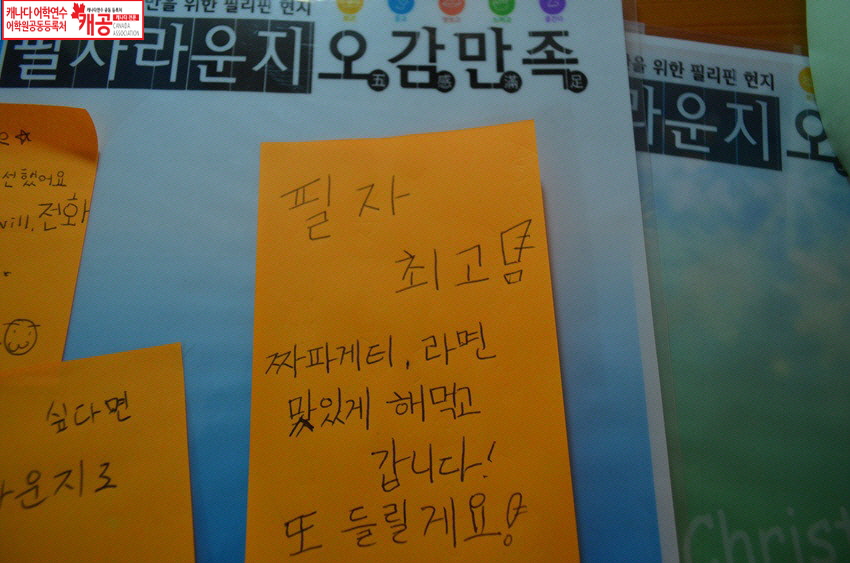 캐나다 어학연수
어학원공동등록처
캐공
CANADA
ASSOCIATION
만을 위한 필리핀 현지
필자라운지 오감만족
五 感 滿 足
을 위한 필리핀 현지
라운지 오
선했어요
will, 전화
싶다면
운지로
필자
최고
짜파게티, 라면
맛있게 해먹고
갑니다!
또 들릴게요!
Christ